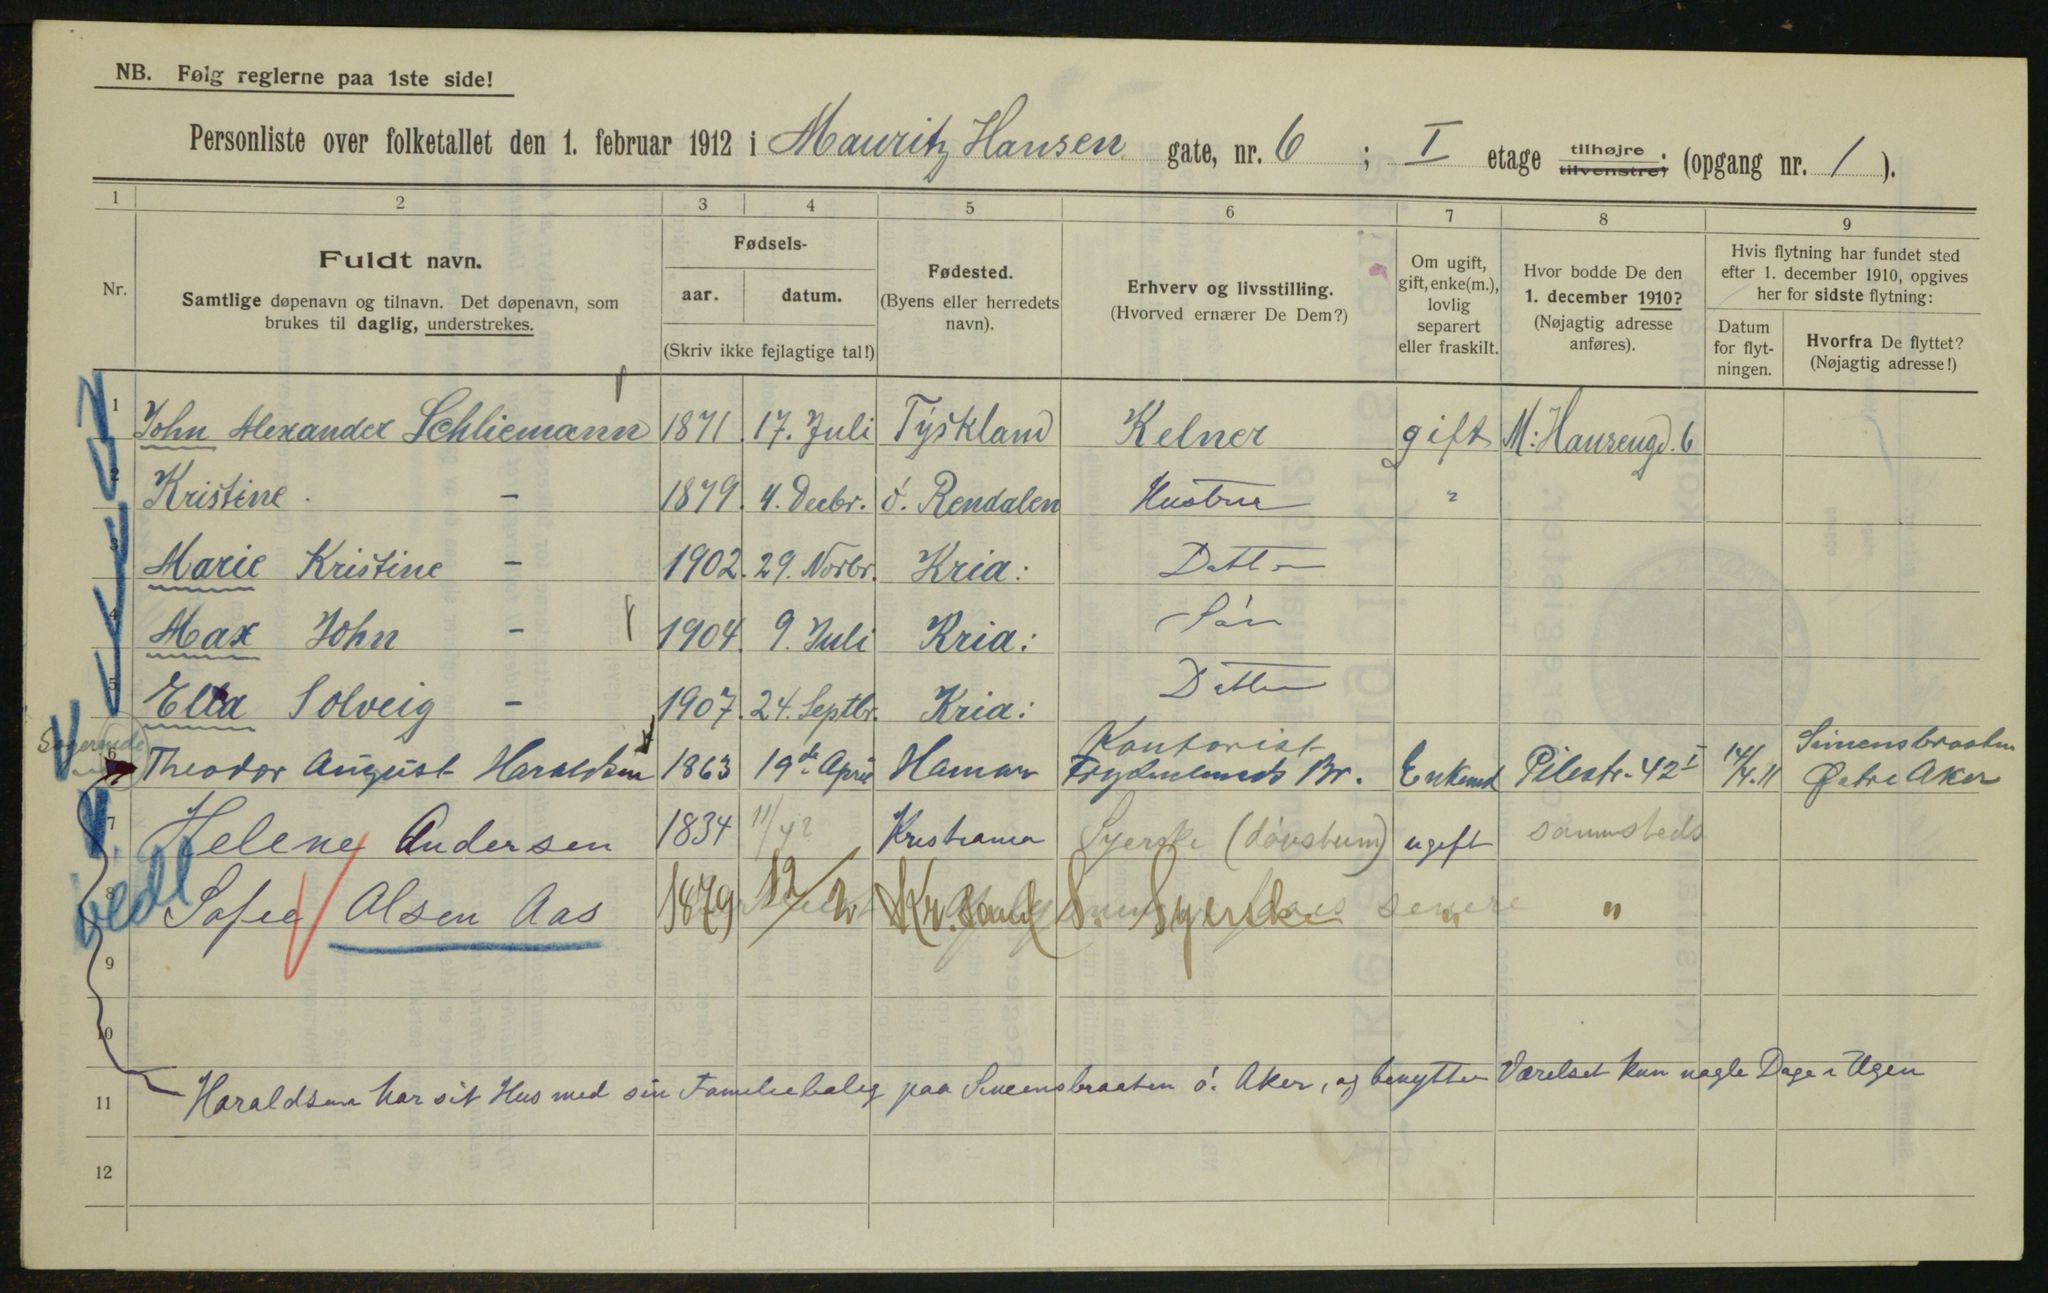 NB. Følg reglerne paa 1ste side!
Personliste over folketallet den 1. februar 1912 i Mauritz Hansen gate, nr. 6 ; I etage tilhøjre tilvenstre; (opgang nr. 1 ).
1 2 3 4 5 6 7 8 9
Nr.
Fuldt navn.
Samtlige døpenavn og tilnavn. Det døpenavn, som
brukes til daglig, understrekes.
Fødsels-
aar. datum.
(Skriv ikke fejlagtige tal!)
Fødested.
(Byens eller herredets
navn).
Erhverv og livsstilling.
(Hvorved ernærer De Dem?)
Om ugift,
gift, enke(m.),
lovlig
separert
eller fraskilt.
Hvor bodde De den
1. december 1910?
(Nøjagtig adresse
anføres).
Hvis flytning har fundet sted
efter 1. december 1910, opgives
her for sidste flytning:
Datum
for flyt-
ningen.
Hvorfra De flyttet?
(Nøjagtig adresse!)
1 John Alexander Schliemann 1871 17. Juli Tyskland Kelner gift M: Hansengd. 6
2 Kristine - 1879 4. Decbr. ö. Rendalen Hustru "
3 Marie Kristine - 1902 29. Novbr. Kria: Datter
4 Max John - 1904 9. Juli Kria: Søn
5 Ella Solveig - 1907 24. Septbr. Kria: Datter
6 Theodor August Haraldsen 1863 19de April Hamar Kontorist Frydenlunds Br. Enkemd Pilestr. 42 I 14/4.11 Simensbraaten Østre Aker
7 Helene Andersen 1834 11/ Kristiania Syerske (døvstum) ugift sammesteds
8 Sofie Olsen Aas 1879 12/2 Kr.sand S. Syerske " "
9
10
11 Haraldsen har sit Hus med sin Familiebolig paa Simensbraaten ö. Aker, og benytter Værelset kun nogle Dage i Ugen
12